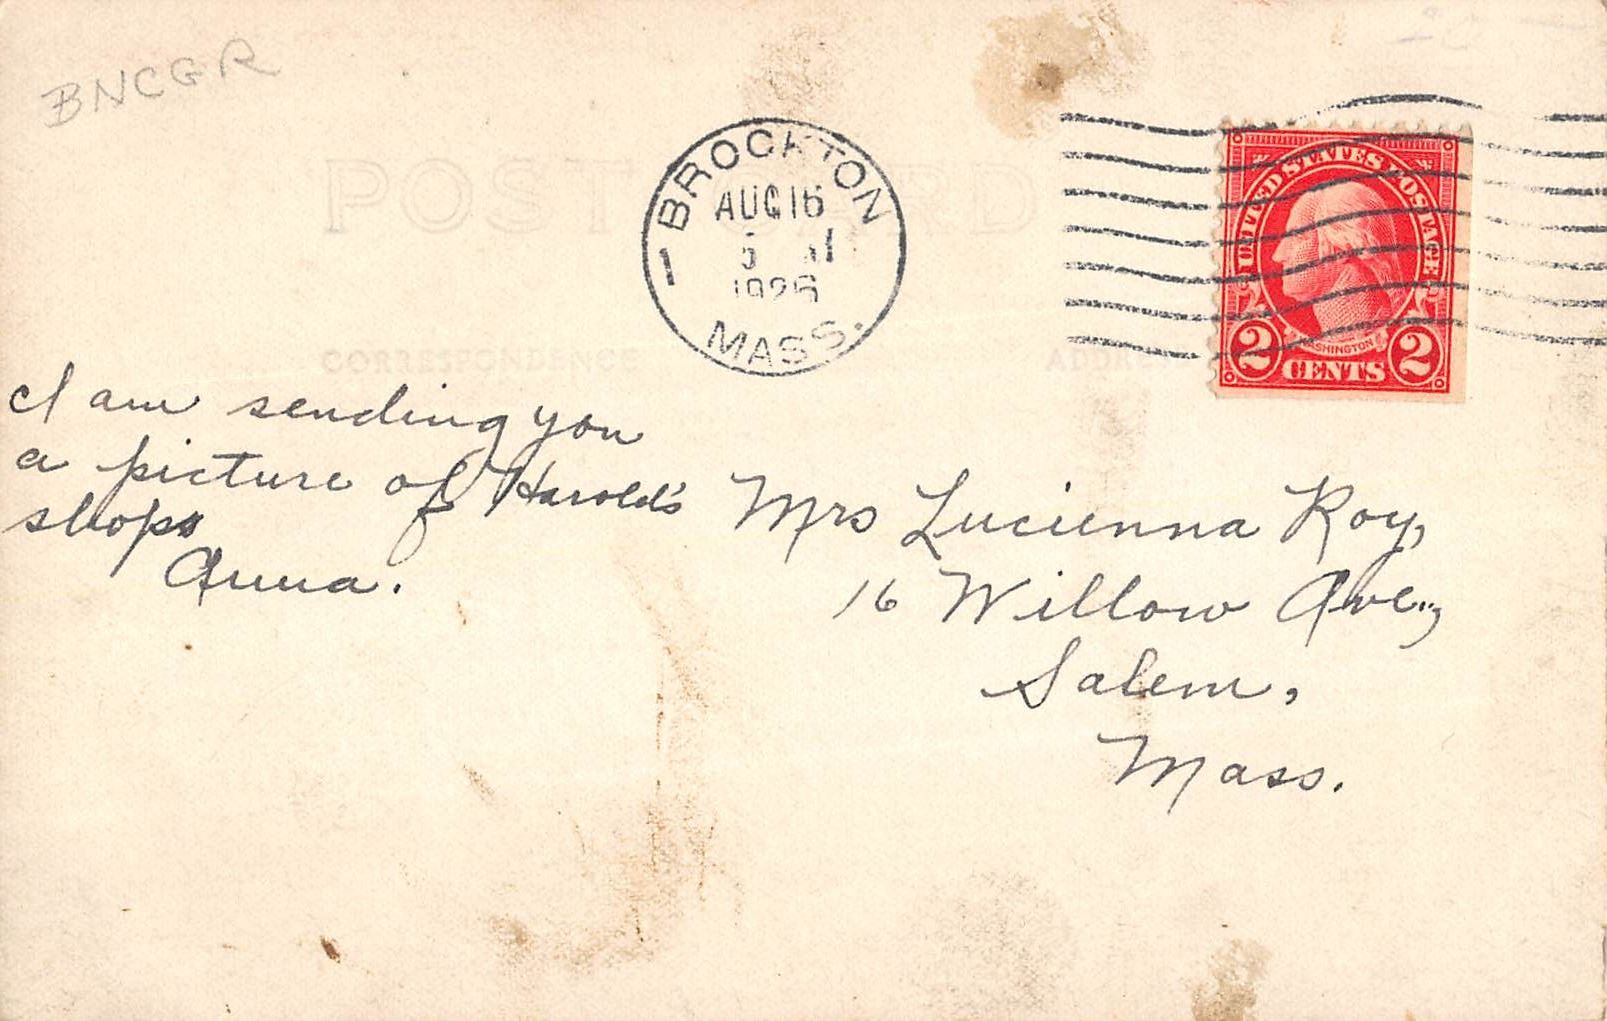 BNCGR
POST CARD
BROCKTON
AUG 16
5
1926
MASS.
1
UNITED STATES POSTAGE
WASHINGTON
2 CENTS 2
CORRESPONDENCE
ADDRESS
I am sending you
a picture of Harold's
shop
Anna.
Mrs Lucienna Roy,
16 Willow Ave.,
Salem,
Mass.